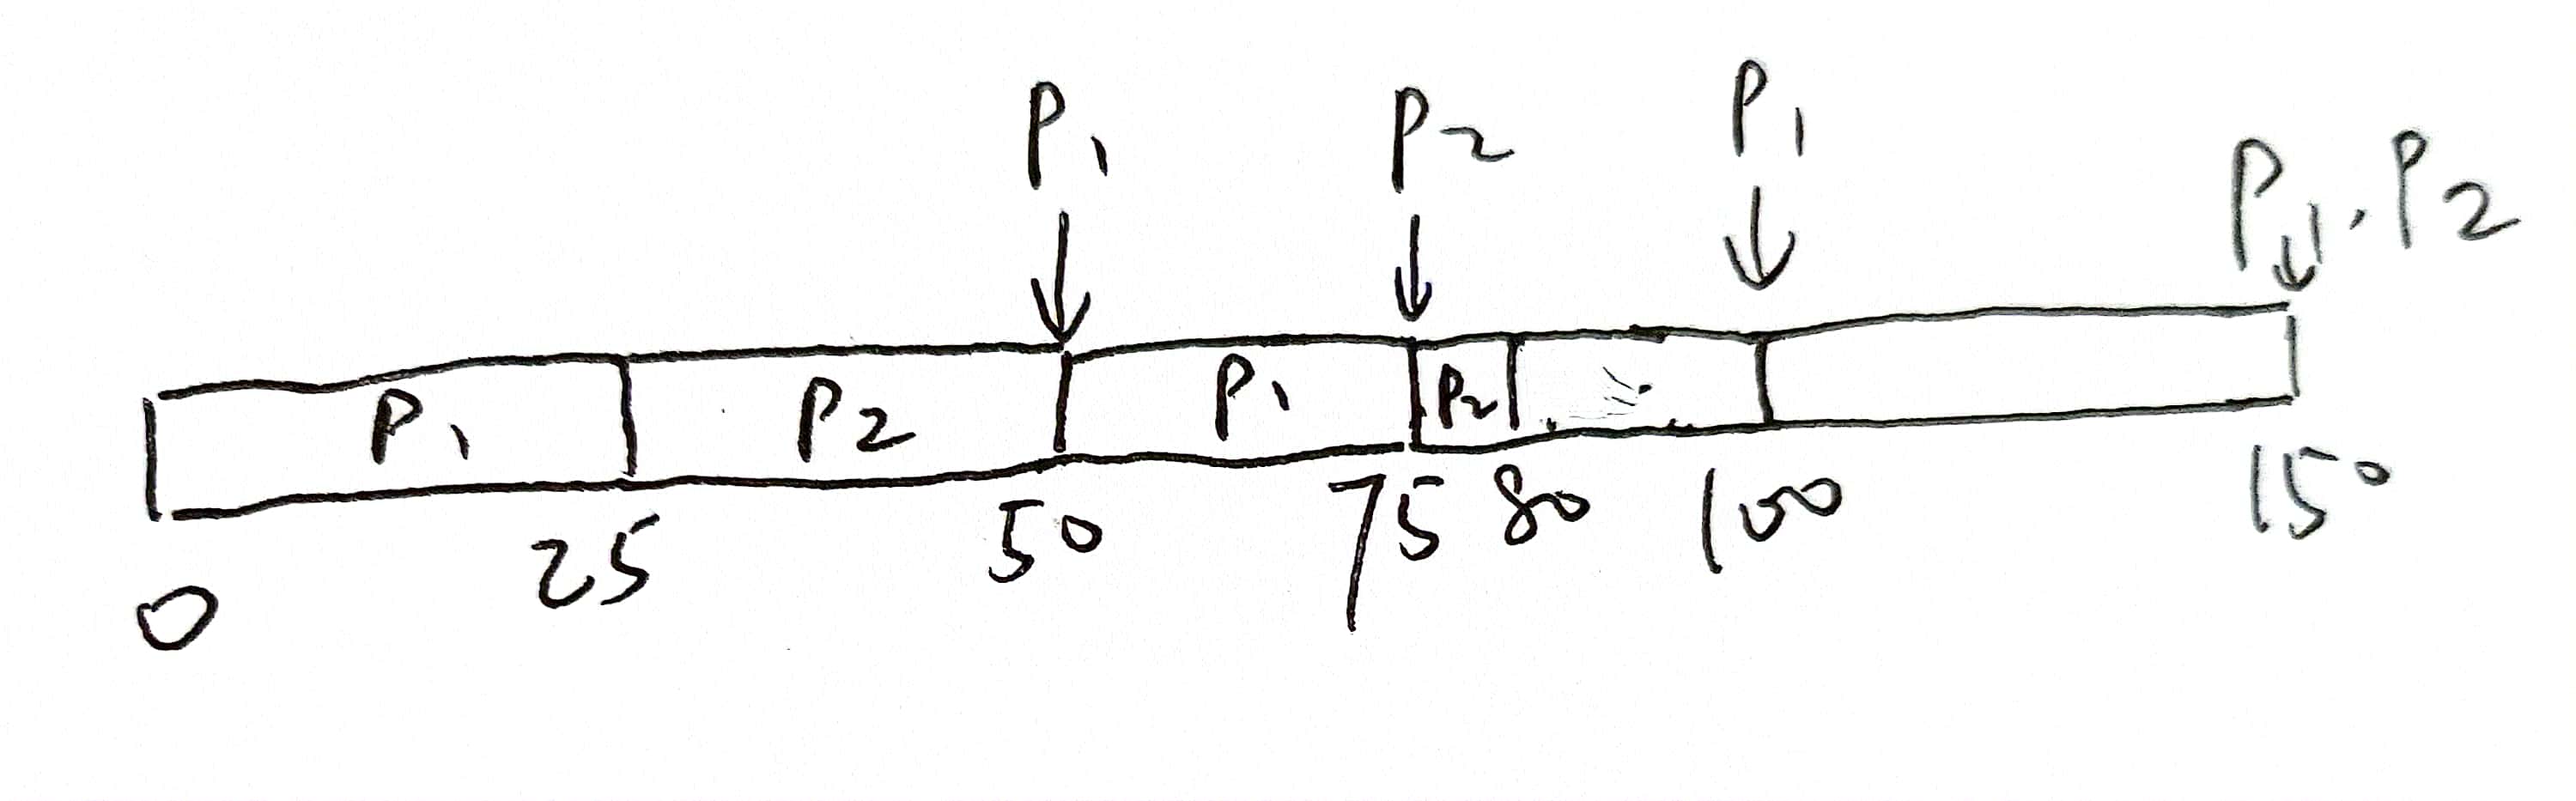 P1 P2 P1 P1, P2
P1 P2 P1 P2
0 25 50 75 80 100 150